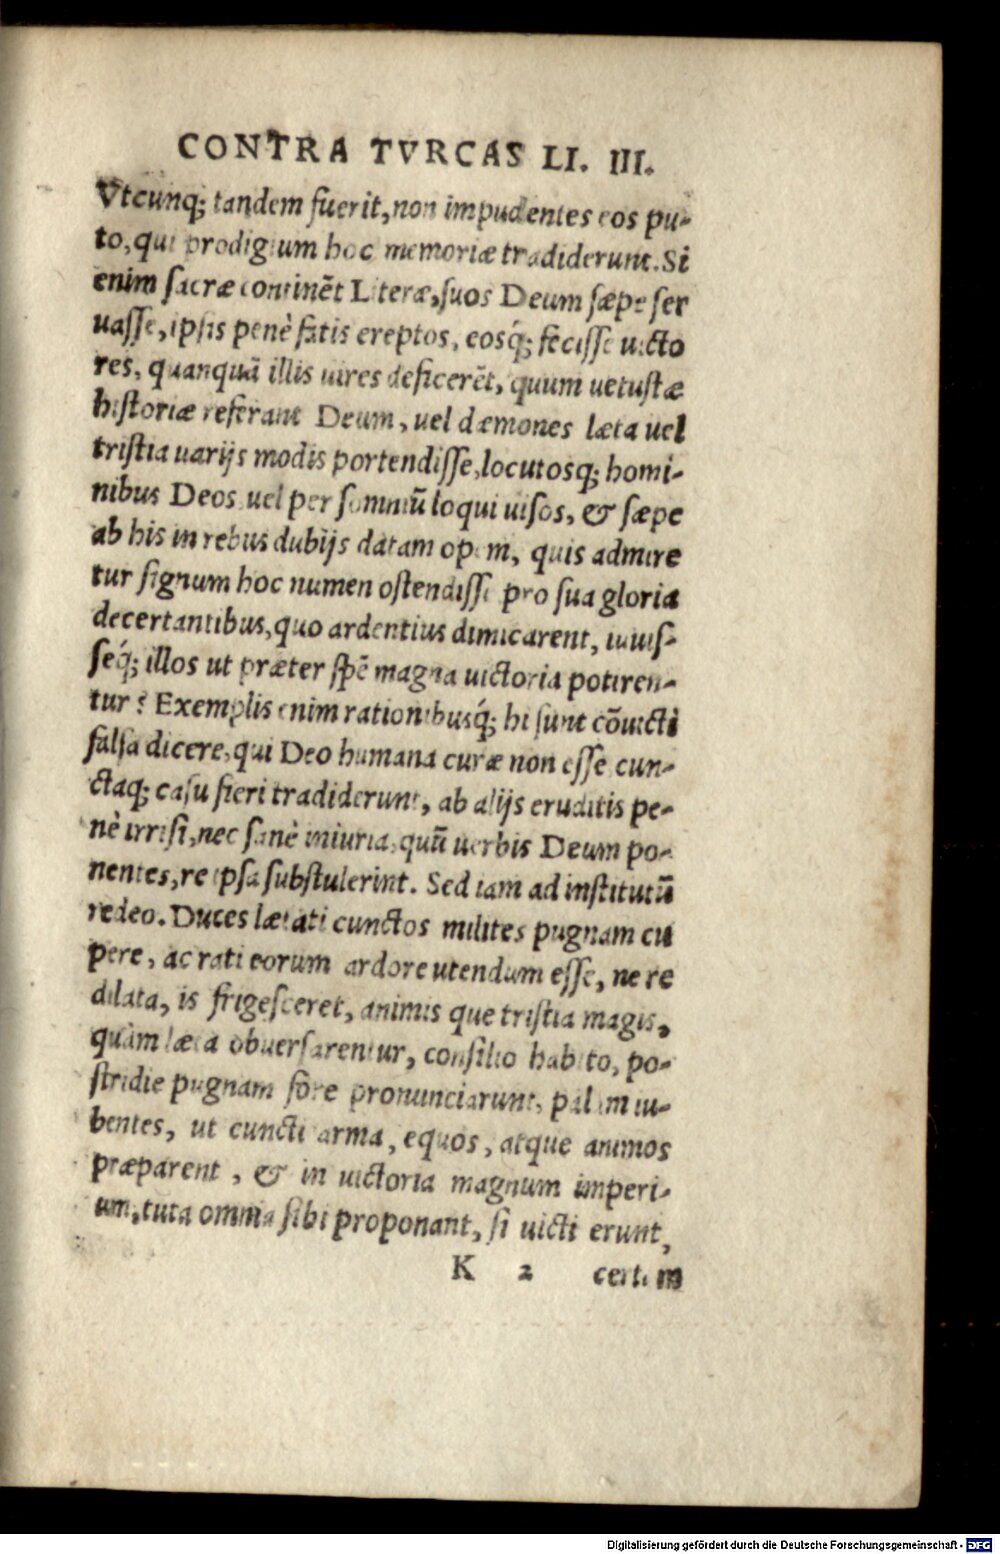 CONTRA TVRCAS LI. III.
Vtcunq; tandem fuerit, non impudentes eos pu-
to, qui prodigium hoc memoriæ tradiderunt. Si
enim sacræ continẽt Literæ, suos Deum sæpe ser
uasse, ipsis penè fatis ereptos, eosq́; fecisse uicto
res, quanquã illis uires deficerẽt, quum uetustæ
historiæ referant Deum, uel dæmones læta uel
tristia uarijs modis portendisse, locutosq; homi-
nibus Deos uel per somniũ loqui uisos, & sæpe
ab his in rebus dubijs datam opem, quis admire
tur signum hoc numen ostendisse pro sua gloria
decertantibus, quo ardentius dimicarent, iuuis-
seq́; illos ut præter spẽ magna uictoria potiren-
tur? Exemplis enim rationibusq́; hi sunt cõuicti
falsa dicere, qui Deo humana curæ non esse cun-
ctaq; casu fieri tradiderunt, ab alijs eruditis pe-
nè irrisi, nec sanè iniuria, quũ uerbis Deum po-
nentes, re ipsa substulerint. Sed iam ad institutũ
redeo. Duces lætati cunctos milites pugnam cu
pere, ac rati eorum ardore utendum esse, ne re
dilata, is frigesceret, animis que tristia magis,
quàm læta obuersarentur, consilio habito, po-
stridie pugnam fore pronunciarunt, palam iu-
bentes, ut cuncti arma, equos, atque animos
præparent, & in uictoria magnum imperi-
um, tuta omnia sibi proponant, si uicti erunt,
K 2 certam
Digitalisierung gefördert durch die Deutsche Forschungsgemeinschaft - DFG